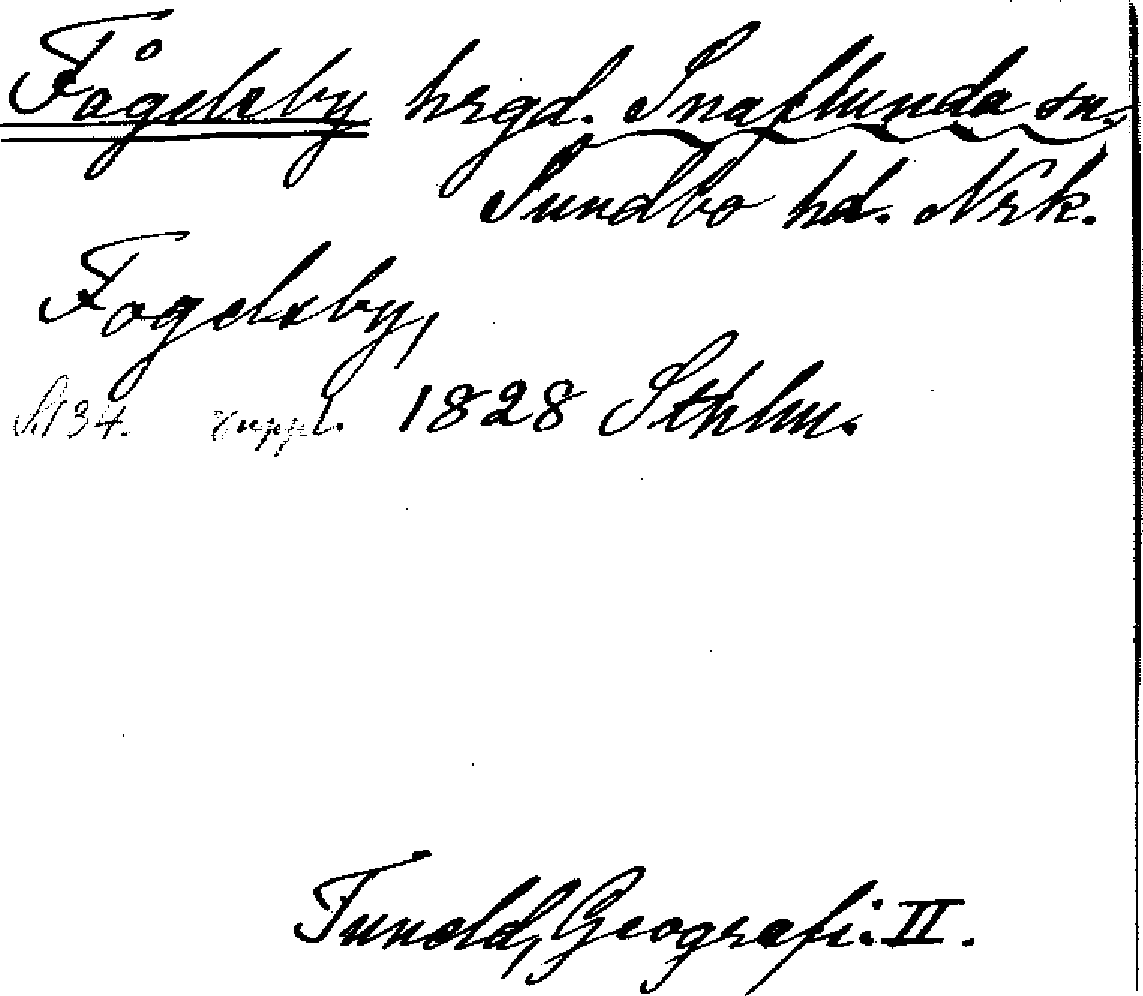 Fågelsby hrgd. Snaflunda sn.
Sundbo hd. Nrk.
Fogelsby,
S. 134. suppl. 1828 Sthlm.
Tuneld, Geografi. II.